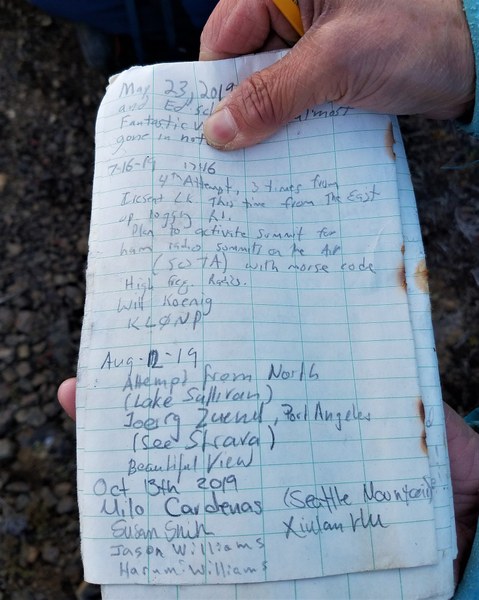 May 23, 2019
and Ed
Fantastic almost
gone in
7-16-19
4th Attempt, 3 times from
Iresent Lk This time from The East
up logging Rd.
Plan to activate summit for
ham radio summits on the Air
(SOTA) with morse code
High freq. Radio.
Will Koenig
KL0NP
Aug-12-19
Attempt from North
(Lake Sullivan)
Joerg Zuend, Port Angeles
(See Strava)
Beautiful View
Oct 13th 2019
Milo Cardenas (Seattle
Susan Shih Xiulan Hu
Jason Williams
Harumi Williams